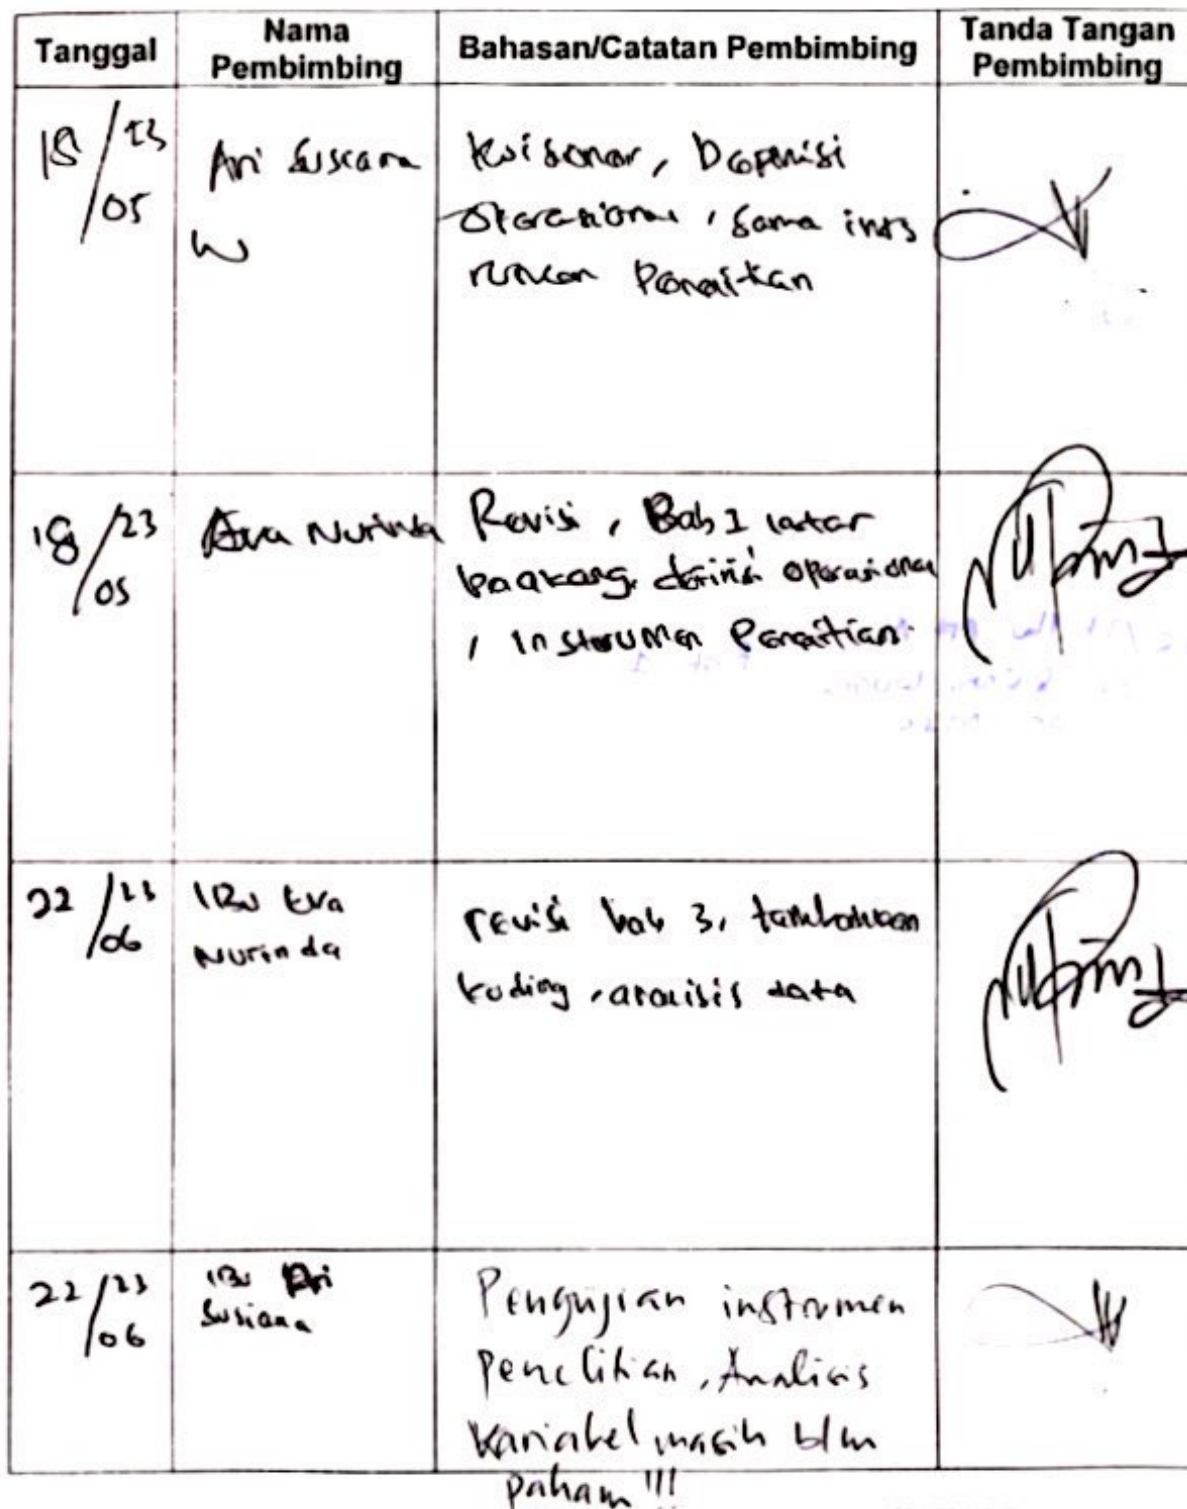 Tanggal
Nama
Pembimbing
Bahasan/Catatan Pembimbing
Tanda Tangan
Pembimbing
18/23
05
Ari Susiana
W
Kuisoner, Depenisi
Operasional, sama ins
rumen Penelitian
18/23
05
Eva Nurinda
Revisi, Bab 1 latar
belakang, definisi operasional
, instrumen Penelitian
22/23
06
IBu Eva
Nurinda
revisi bab 3, tambahkan
koding, analisis data
22/23
06
IBu Ari
Susiana
Pengujian instrumen
penelitian, Analisis
Variabel masih blm
paham!!!